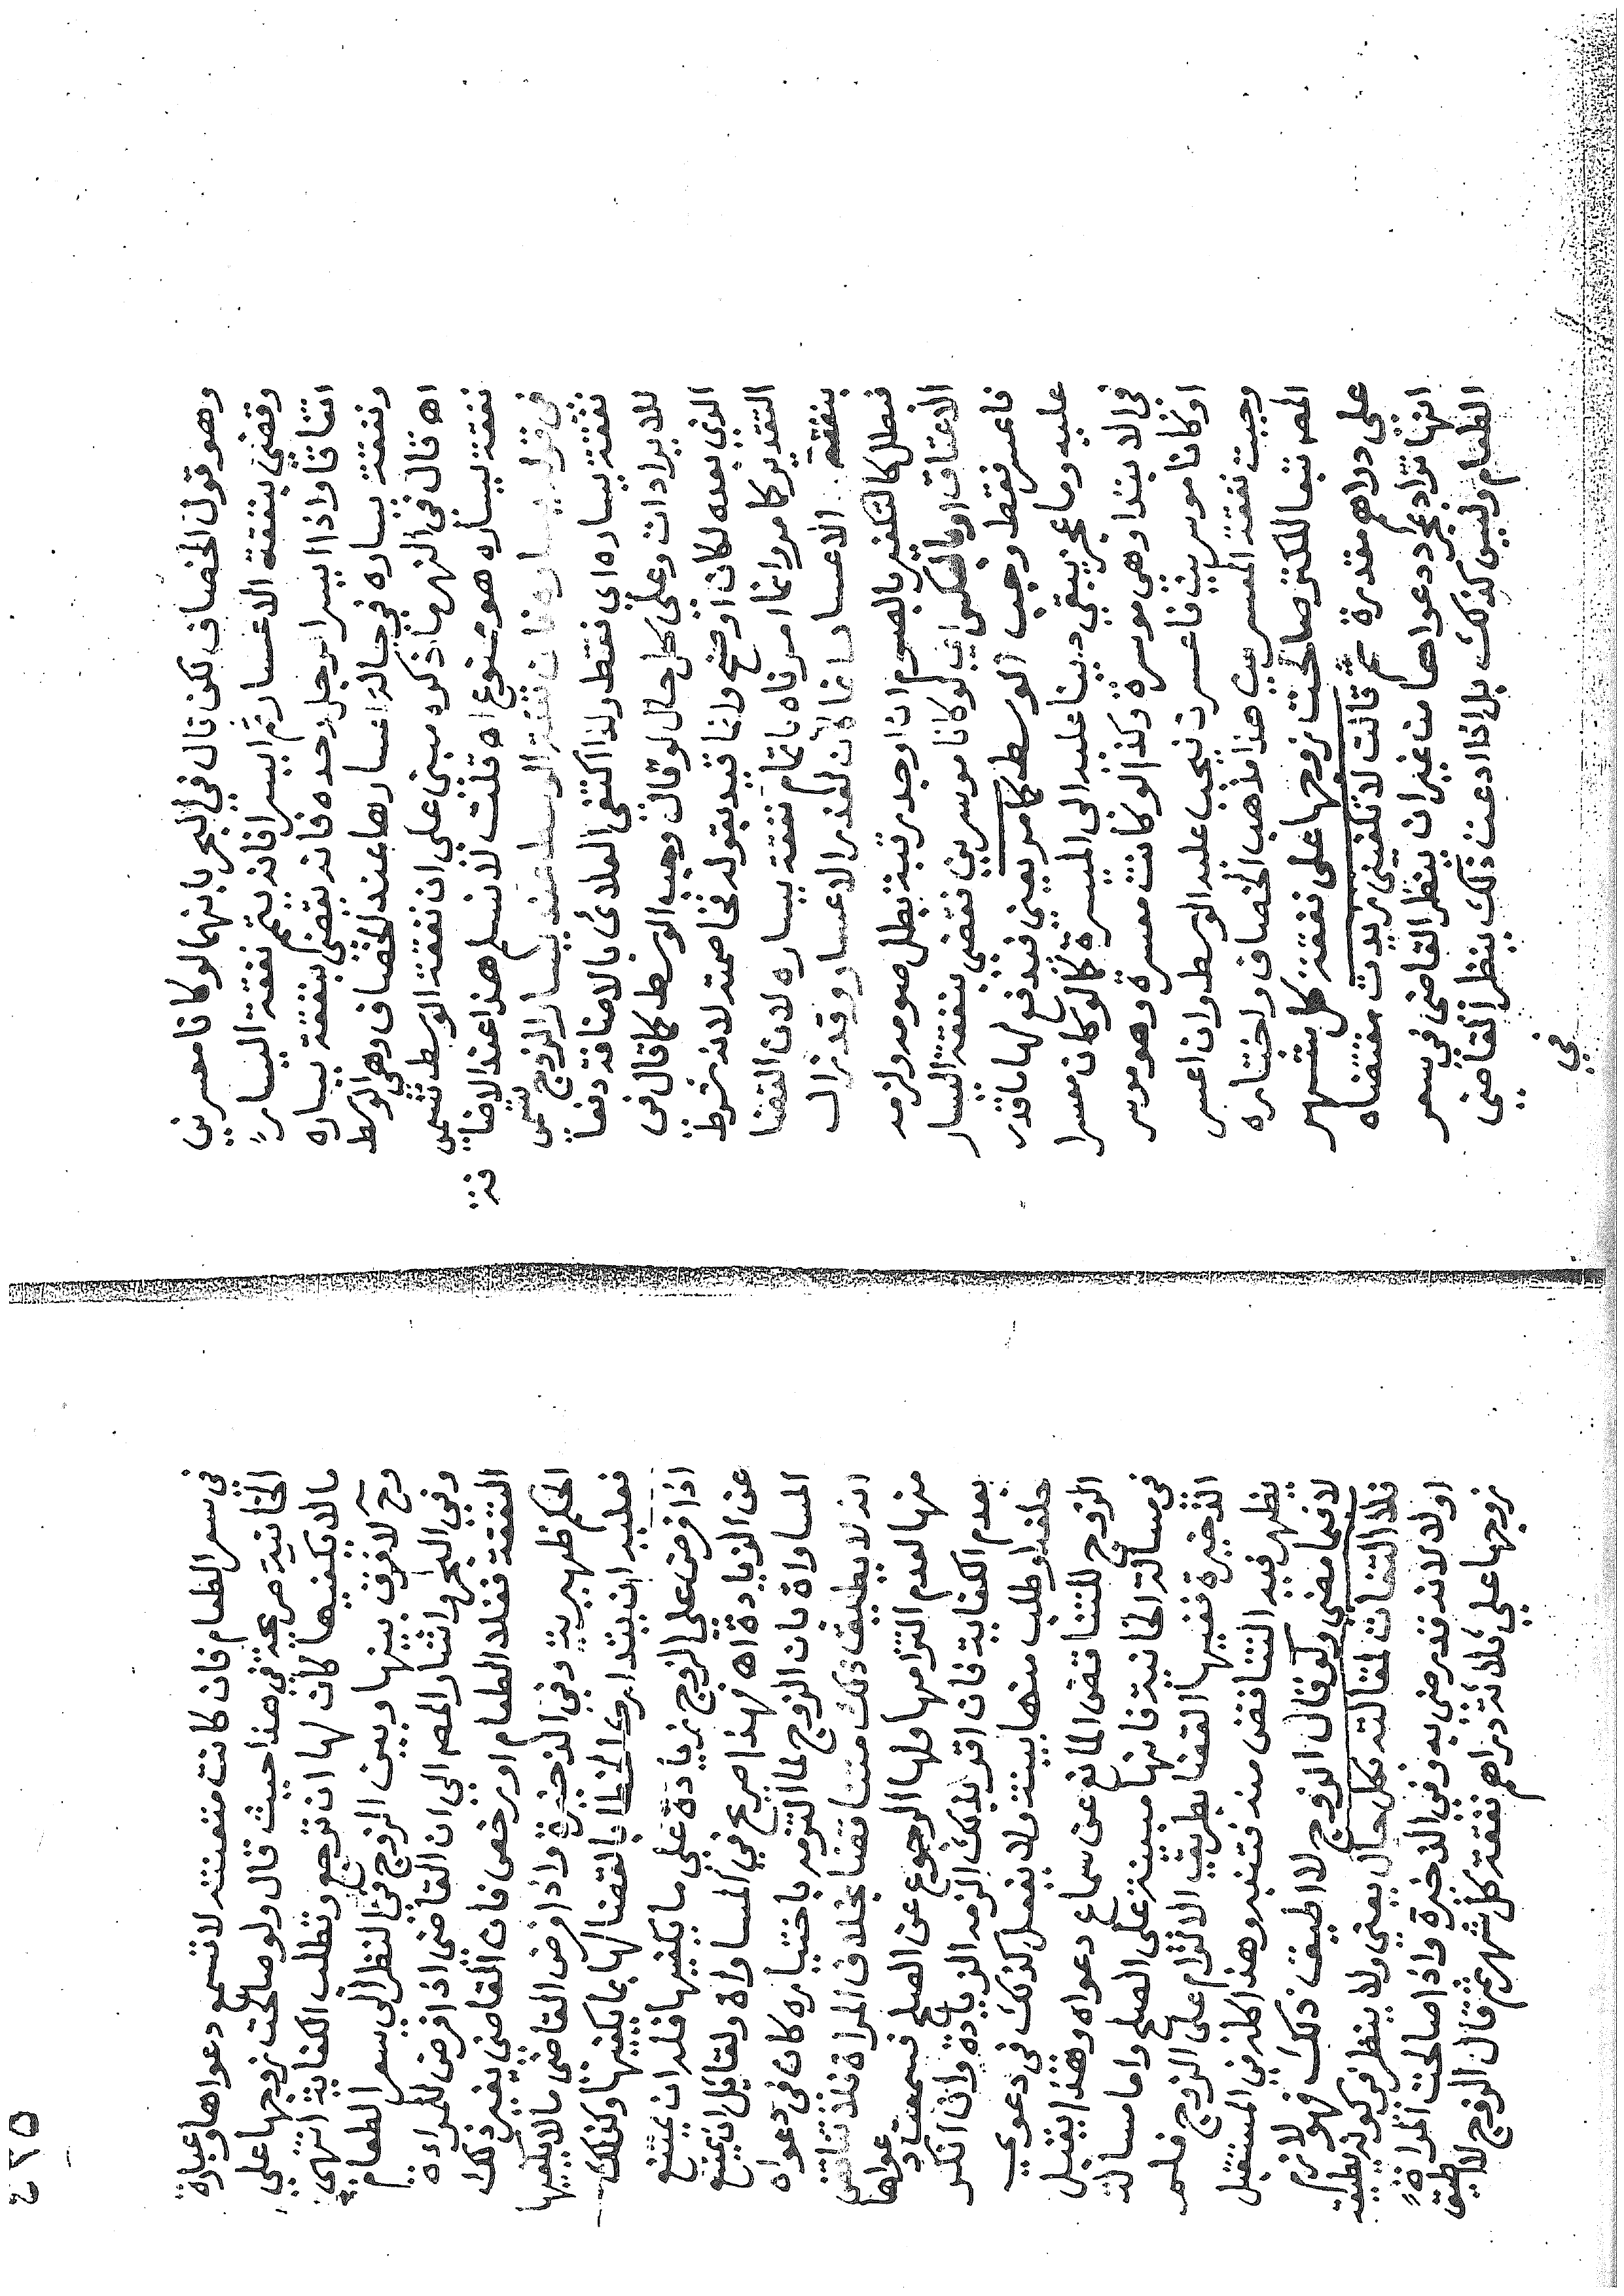 وهو قول الخصاف لكن قال في البحر بانهما لو كانا معسرين
وقضى بنفقة الاعسار ثم ايسرا فانه يتمم نفقة اليسار
اتفاقا واذا ايسر الرجل وحده فانه يقضى بنفقة يساره
ونفقة يساره في حال اعسارها عند الخصاف وهي الوسط
اه قال في النهر ما ذكره مبنى على ان نفقة الوسط تسمى
نفقة يساره هو ممنوع اه قلت لا نسلم هذا عند الاضافة
في قوله يساره فان نفقة الوسط عند يسار الزوج تسمى
نفقة يساره اى نفقط ولذا اكتفى العلائى بالاضافة دفعا
للايرادات وعلى كل حال لو قال وجب الوسط كما قال في
الذي بعده لكان اوضح وانما قيد بقوله فخاصمته لانه شرط
التقدير كما مر وانما امرناه باتمام نفقة يساره لان القضا
بنفقة الاعسار انما كان لعذر الاعسار وقد زال
فبطل كالتكفير بالصوم ان وجد رقبة بطل صومه ولزمه
الاعتاق او بالعكس اي لو كانا موسرين نقضى بنفقة اليسار
فاعسر فقط وجب الوسط كما مر يعنى فيدفع لها ما قدر
عليه وما عجز يبقى دينا عليه الى الميسرة كما لو كان معسرا
في الابتدا وهى موسرة وكذا لو كانت معسرة وهو موسر
او كانا موسرين فاعسرت تجب عليه الوسط وان اعسر
وجبت نفقة المعسرين هذا مذهب الخصاف واختاره
المص تبعا للكنز صالحت زوجها على نفقة كل شهر
على دراهم مقدرة ثم قالت لا تكفيني زيدت مقتضاه
انها تزاد بمجرد دعواها من غير ان ينظر القاضى في سعر
الطعام وليس كذلك بل اذا ادعت ذلك ينظر القاضى
في
٤٢٥
في سعر الطعام فان كانت متعنتة لا تسمع دعواها وعبارة
الخانية صريحة في هذا حيث قال ولو صالحت زوجها على
مالا يكفيها كان لها ان ترجع وتطلب الكفاية انتهى
وح لا فرق بينها وبين الزوج في النظر الى سعر الطعام
وفي البحر واشار المص الى ان القاضى اذا فرض للمراة
النفقة فغلا الطعام او رخص فان القاضى يغير ذلك
الحكم ظهيرية وفي الذخيرة واذا فرض القاضى مالا يكفيها
فعليه ان يتدارك الخطا بالقضا لها بما يكفيها وكذلك
اذا فرض على الزوج زيادة على ما يكفيها فله ان يمتنع
عن الزيادة اه فهذا صريح في المساواة ولقائل ان يمنع
المساواة بان الزوج لما التزمه باختياره كان في دعواه
انه لا يطيق ذلك متناقضا بخلاف المراة فلا تناقض
منها لعدم التزامها ولها الرجوع عن الصلح فسمعت دعواها
بعدم الكفاية فان اقر بذلك الزمه الزيادة وان انكر
حلفه او طلب منها بينة ولا يفعل كذلك في دعوى
الزوج للتناقض المانع عن سماع دعواه وهذا يقبل
في مسالة الخانية فانها مبينة على الصلح واما مسالة
الذخيرة ففيها القضا بطريق الالزام على الزوج فلم
يظهر فيه التناقض منه فتنبه وهذا كله في المستقبل
لا فيما مضى ولو قال الزوج لا اطيق ذلك فهو لازم
فلا التفات لمقالته بكل حال يعنى ولا ينظر في كونه يطيقه
او لا لانه قد رضى به وفي الذخيرة واذا صالحت المراة
زوجها على ثلاثة دراهم نفقة كل شهر ثم قال الزوج لا اطيق